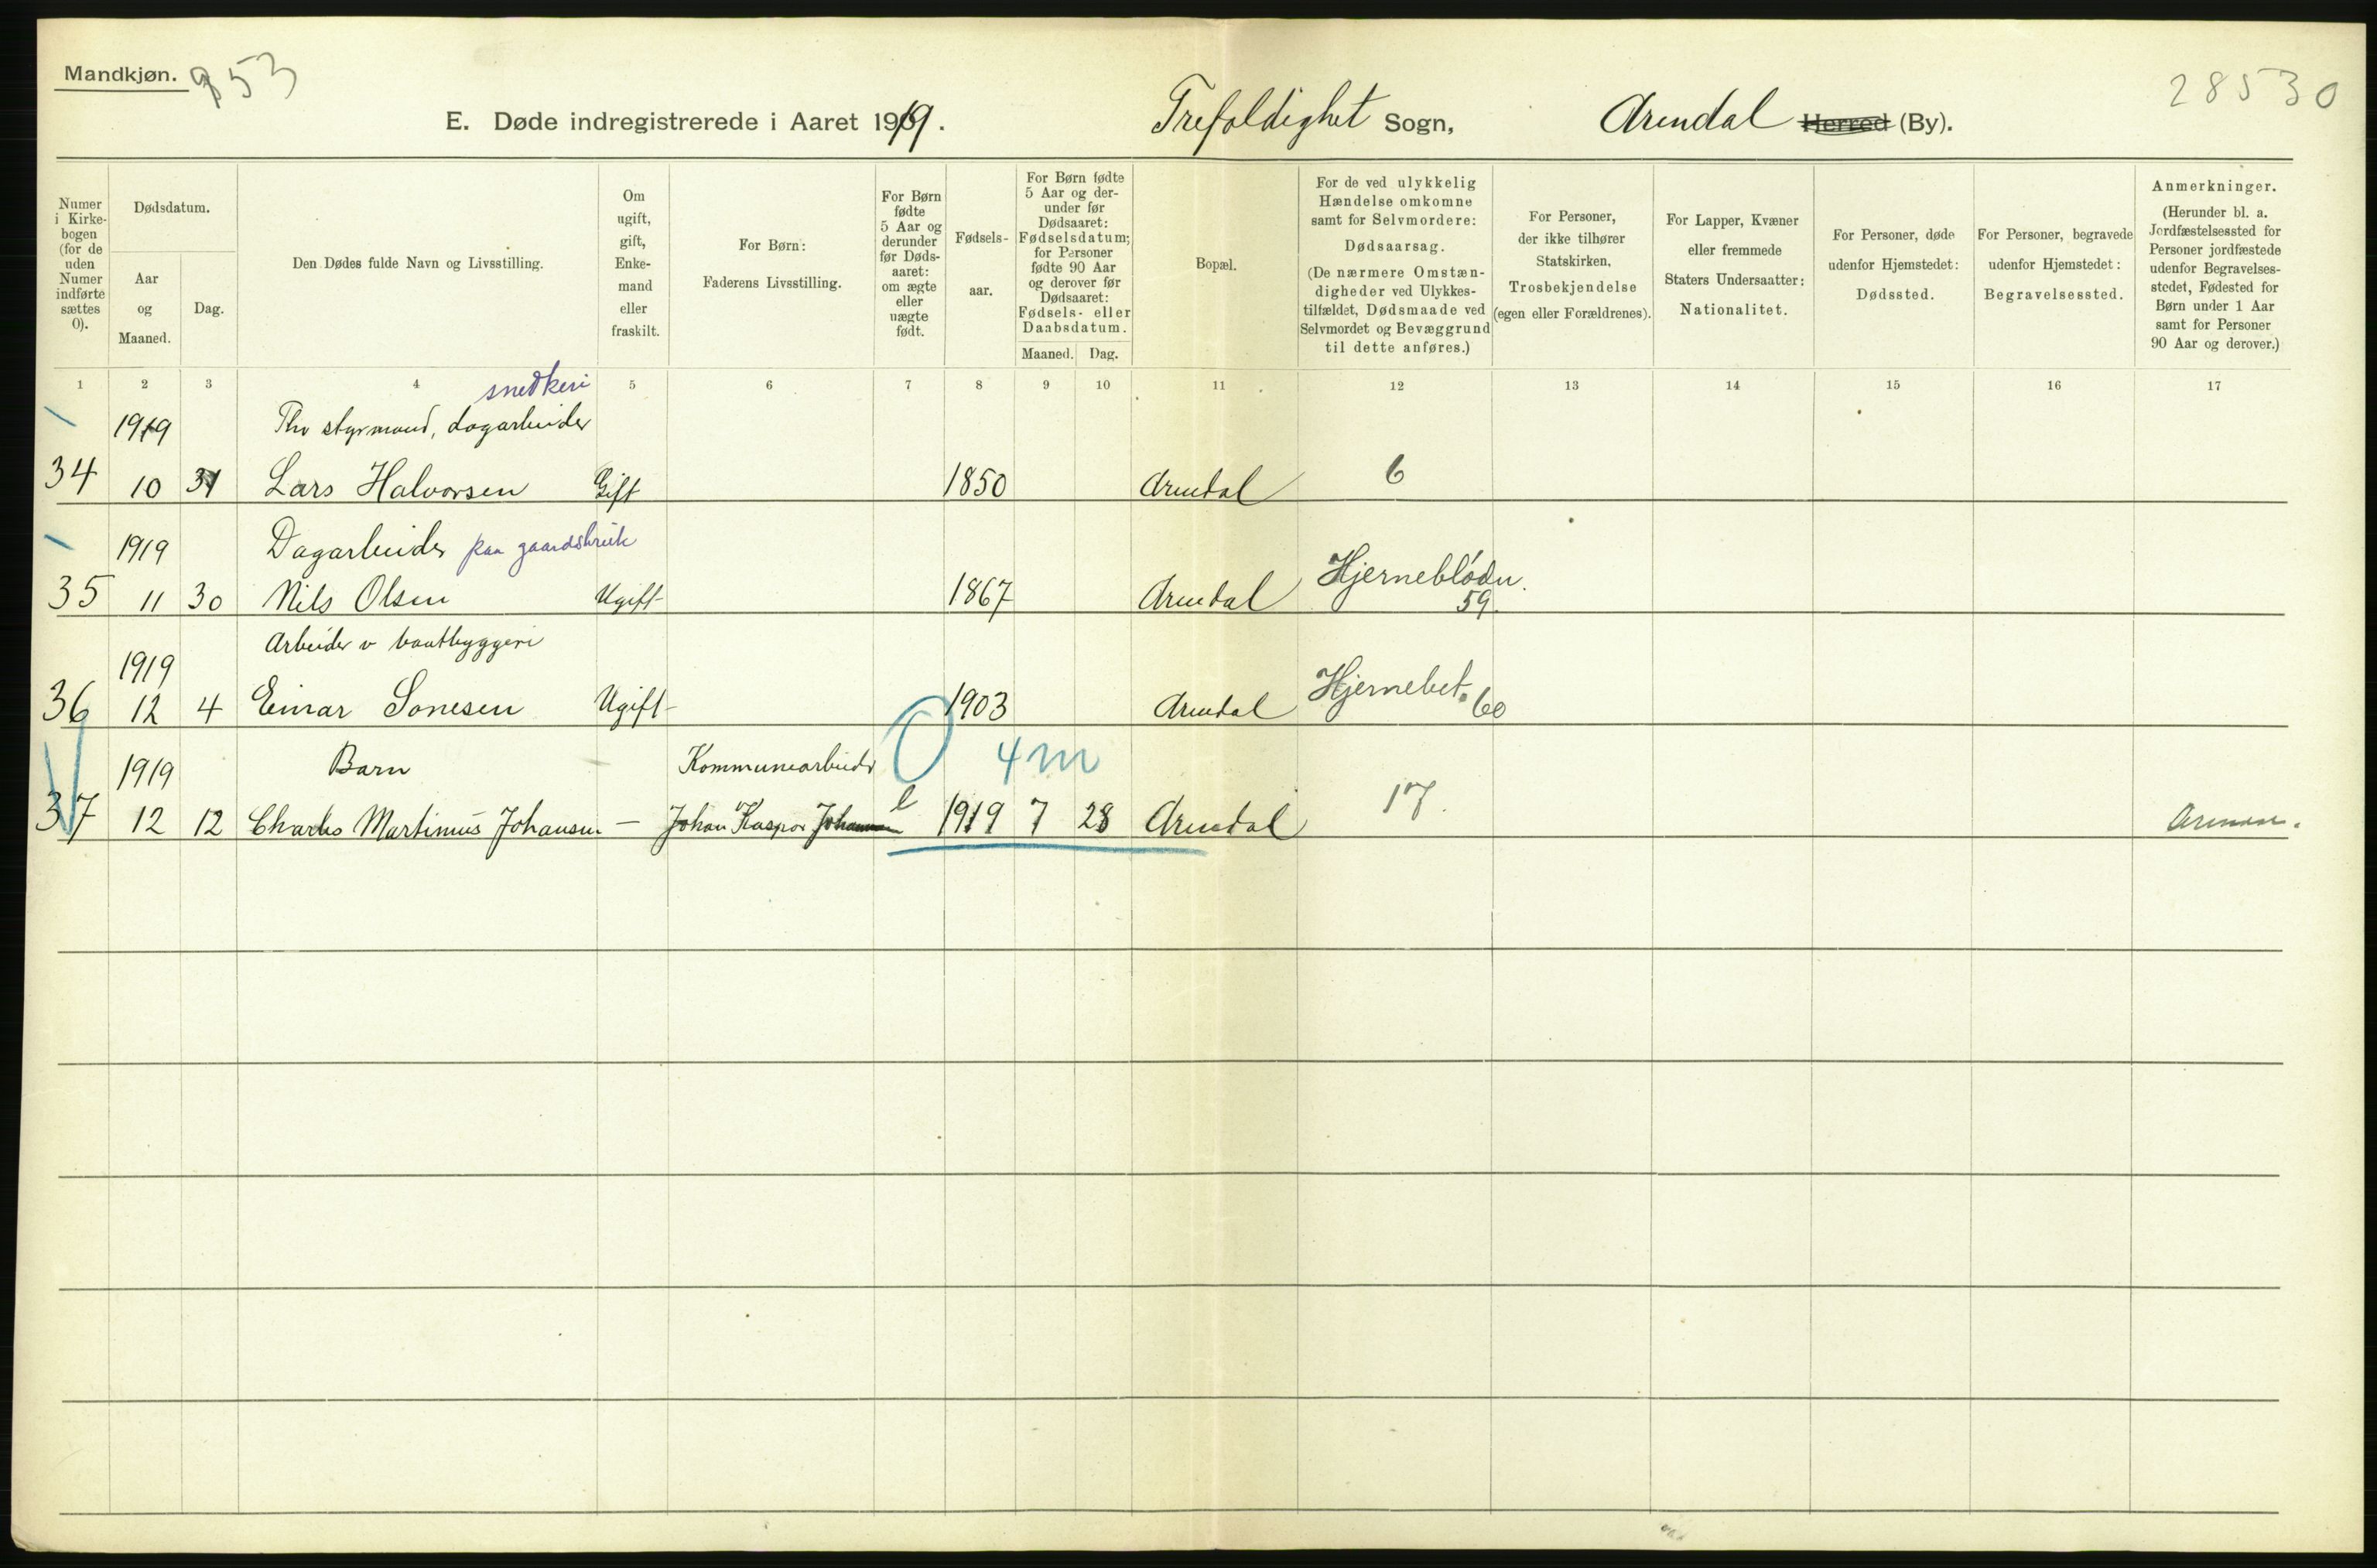 Mandkjøn. 853
28530
E. Døde indregistrerede i Aaret 1919. Trefoldighet Sogn, Arendal Herred (By).
Numer
i Kirke-
bogen
(for de
uden
Numer
indførte
sættes
0).
Dødsdatum.
Aar
og
Maaned.
Dag.
Den Dødes fulde Navn og Livsstilling.
Om
ugift,
gift,
Enke-
mand
eller
fraskilt.
For Børn:
Faderens Livsstilling.
For Børn
fødte
5 Aar og
derunder
før Døds-
aaret:
om ægte
eller
uægte
født.
Fødsels-
aar.
For Børn fødte
5 Aar og der-
under før
Dødsaaret:
Fødselsdatum;
for Personer
fødte 90 Aar
og derover før
Dødsaaret:
Fødsels- eller
Daabsdatum.
Maaned. Dag.
Bopæl.
For de ved ulykkelig
Hændelse omkomne
samt for Selvmordere:
Dødsaarsag.
(De nærmere Omstæn-
digheder ved Ulykkes-
tilfældet, Dødsmaade ved
Selvmordet og Bevæggrund
til dette anføres.)
For Personer,
der ikke tilhører
Statskirken,
Trosbekjendelse
(egen eller Forældrenes).
For Lapper, Kvæner
eller fremmede
Staters Undersaatter:
Nationalitet.
For Personer, døde
udenfor Hjemstedet:
Dødssted.
For Personer, begravede
udenfor Hjemstedet:
Begravelsessted.
Anmerkninger.
(Herunder bl. a.
Jordfæstelsessted for
Personer jordfæstede
udenfor Begravelses-
stedet, Fødested for
Børn under 1 Aar
samt for Personer
90 Aar og derover.)
1 2 3 4 5 6 7 8 9 10 11 12 13 14 15 16 17
snedkeri
1919 styrmand, dagarbeider
34 10 31 Lars Halvorsen Gift 1850 Arendal 6
1919 Dagarbeider paa gaardsbruk Hjerneblødn.
35 11 30 Nils Olsen Ugift 1867 Arendal 59.
Arbeider v baatbyggeri
1919 Hjernebet.
36 12 4 Einar Sonesen Ugift 1903 Arendal 60
1919 Barn Kommunearbeider 0 4m
37 12 12 Charles Martinius Johansen — Johan Kaspar Johansen 1919 7 28 Arendal 17.